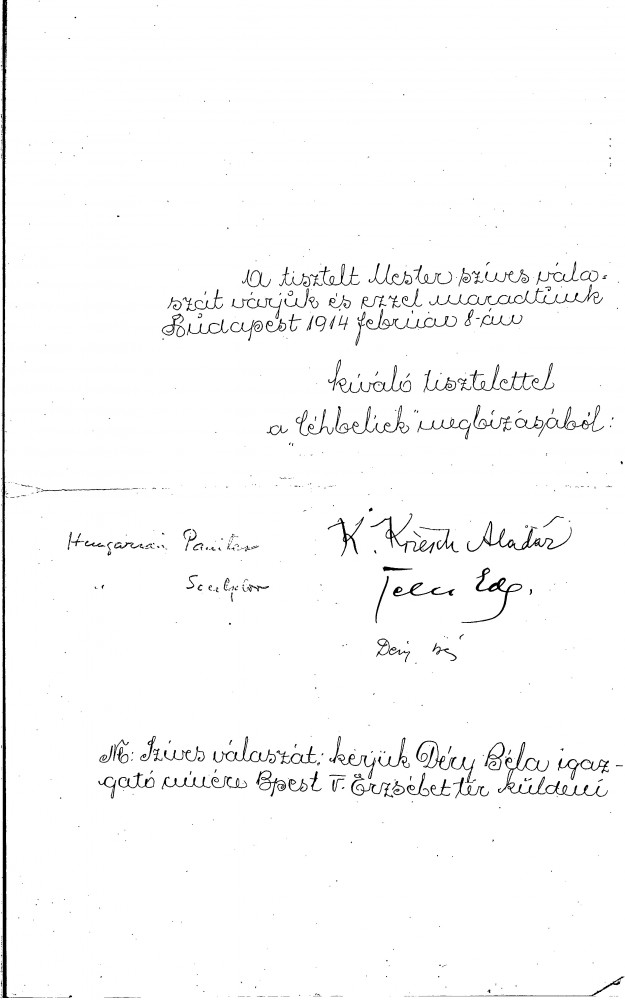 A tisztelt Mester szíves vála-
szát várjuk és ezzel maradtunk
Budapest 1914 február 8-án
kiváló tisztelettel
a "céhbeliek" megbízásából:
Hungarian Painter K. Kriesch Aladár
" Sculptor Telcs Ede.
Déry
NB: Szíves válaszát kérjük Déry Béla igaz-
gató címére Bpest V. Erzsébet tér küldeni